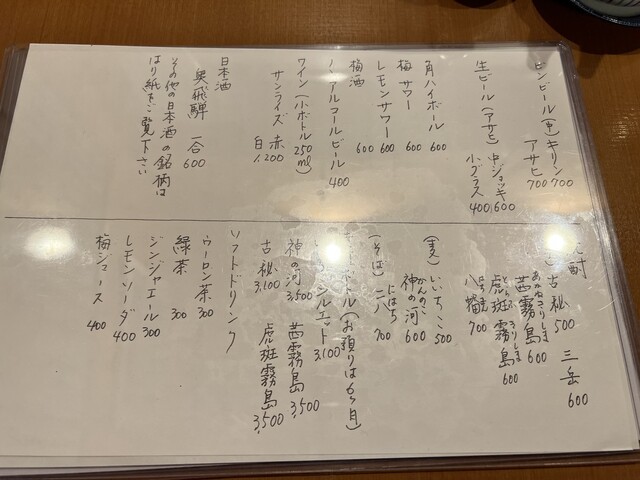 ビンビール(中)キリン700
アサヒ700
生ビール(アサヒ)中ジョッキ600
小グラス400
角ハイボール 600
梅サワー 600
レモンサワー 600
梅酒 600
ノンアルコールビール 400
ワイン(小ボトル250ml)
サンライズ 赤
白 1,200
日本酒
奥飛騨 一合600
その他の日本酒の銘柄は
はり紙をご覧下さい
酎
古秘500 三岳600
あかねきりしま
茜霧島600
虎斑霧島600
八幡700
(麦)いいちこ500
かんのこ
神の河600
(そば)二八700
にはち
ボトル(お預りは6ヶ月)
シルエット3,100
神の河3,500 茜霧島3,500
古秘3,100 虎斑霧島3,500
ソフトドリンク
ウーロン茶300
緑茶300
ジンジャエール300
レモンソーダ400
梅ジュース400